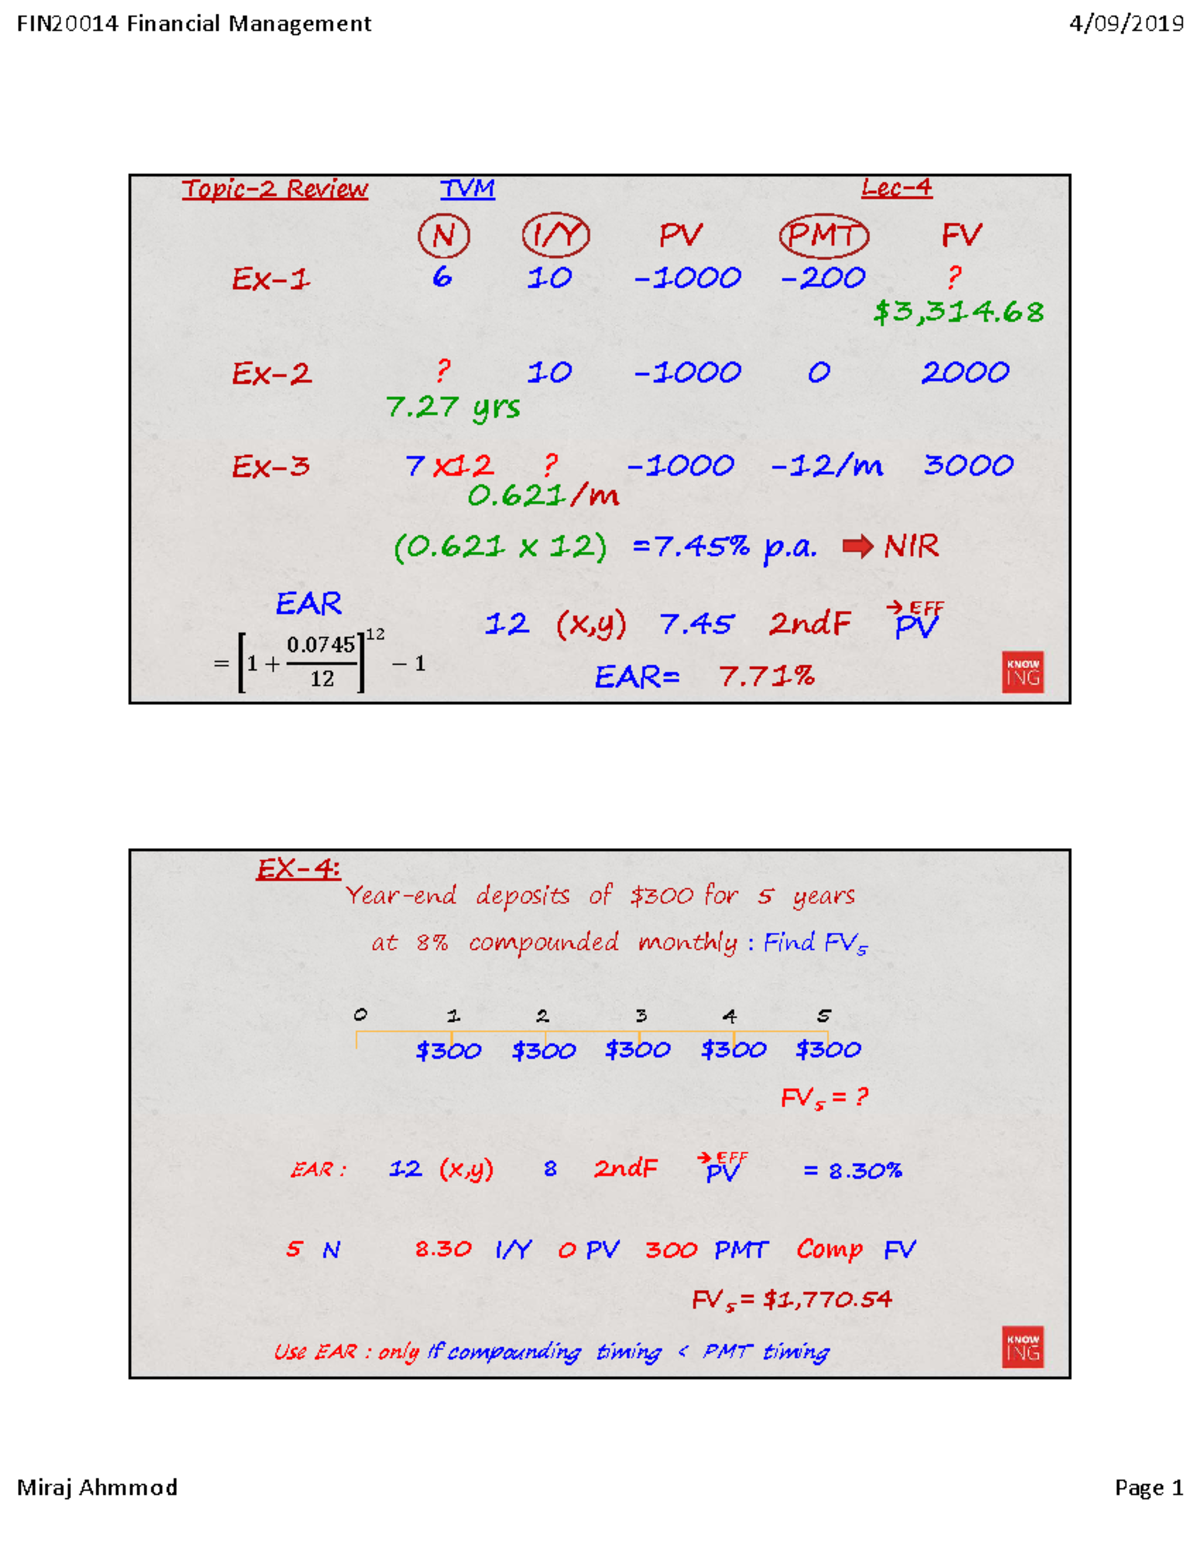 FIN20014 Financial Management 4/09/2019
Topic-2 Review TVM Lec-4
N I/Y PV PMT FV
Ex-1 6 10 -1000 -200 ?
$3,314.68
Ex-2 ? 10 -1000 0 2000
7.27 yrs
Ex-3 7 x12 ? -1000 -12/m 3000
0.621/m
(0.621 x 12) =7.45% p.a. ➡ NIR
EAR
= [1 + 0.0745/12]^12 − 1
12 (x,y) 7.45 2ndF →EFF PV
EAR= 7.71%
KNOW
ING
EX-4:
Year-end deposits of $300 for 5 years
at 8% compounded monthly : Find FV5
0 1 2 3 4 5
$300 $300 $300 $300 $300
FV5 = ?
EAR : 12 (x,y) 8 2ndF →EFF PV = 8.30%
5 N 8.30 I/Y 0 PV 300 PMT Comp FV
FV5 = $1,770.54
Use EAR : only if compounding timing < PMT timing
KNOW
ING
Miraj Ahmmod Page 1